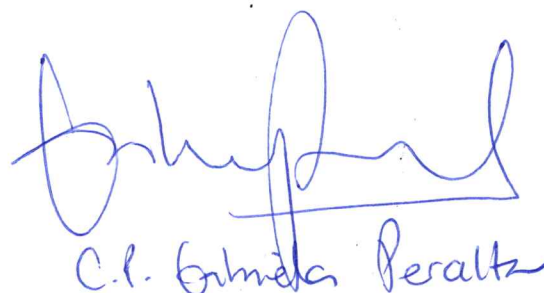 C.P. Gabriela Peralta